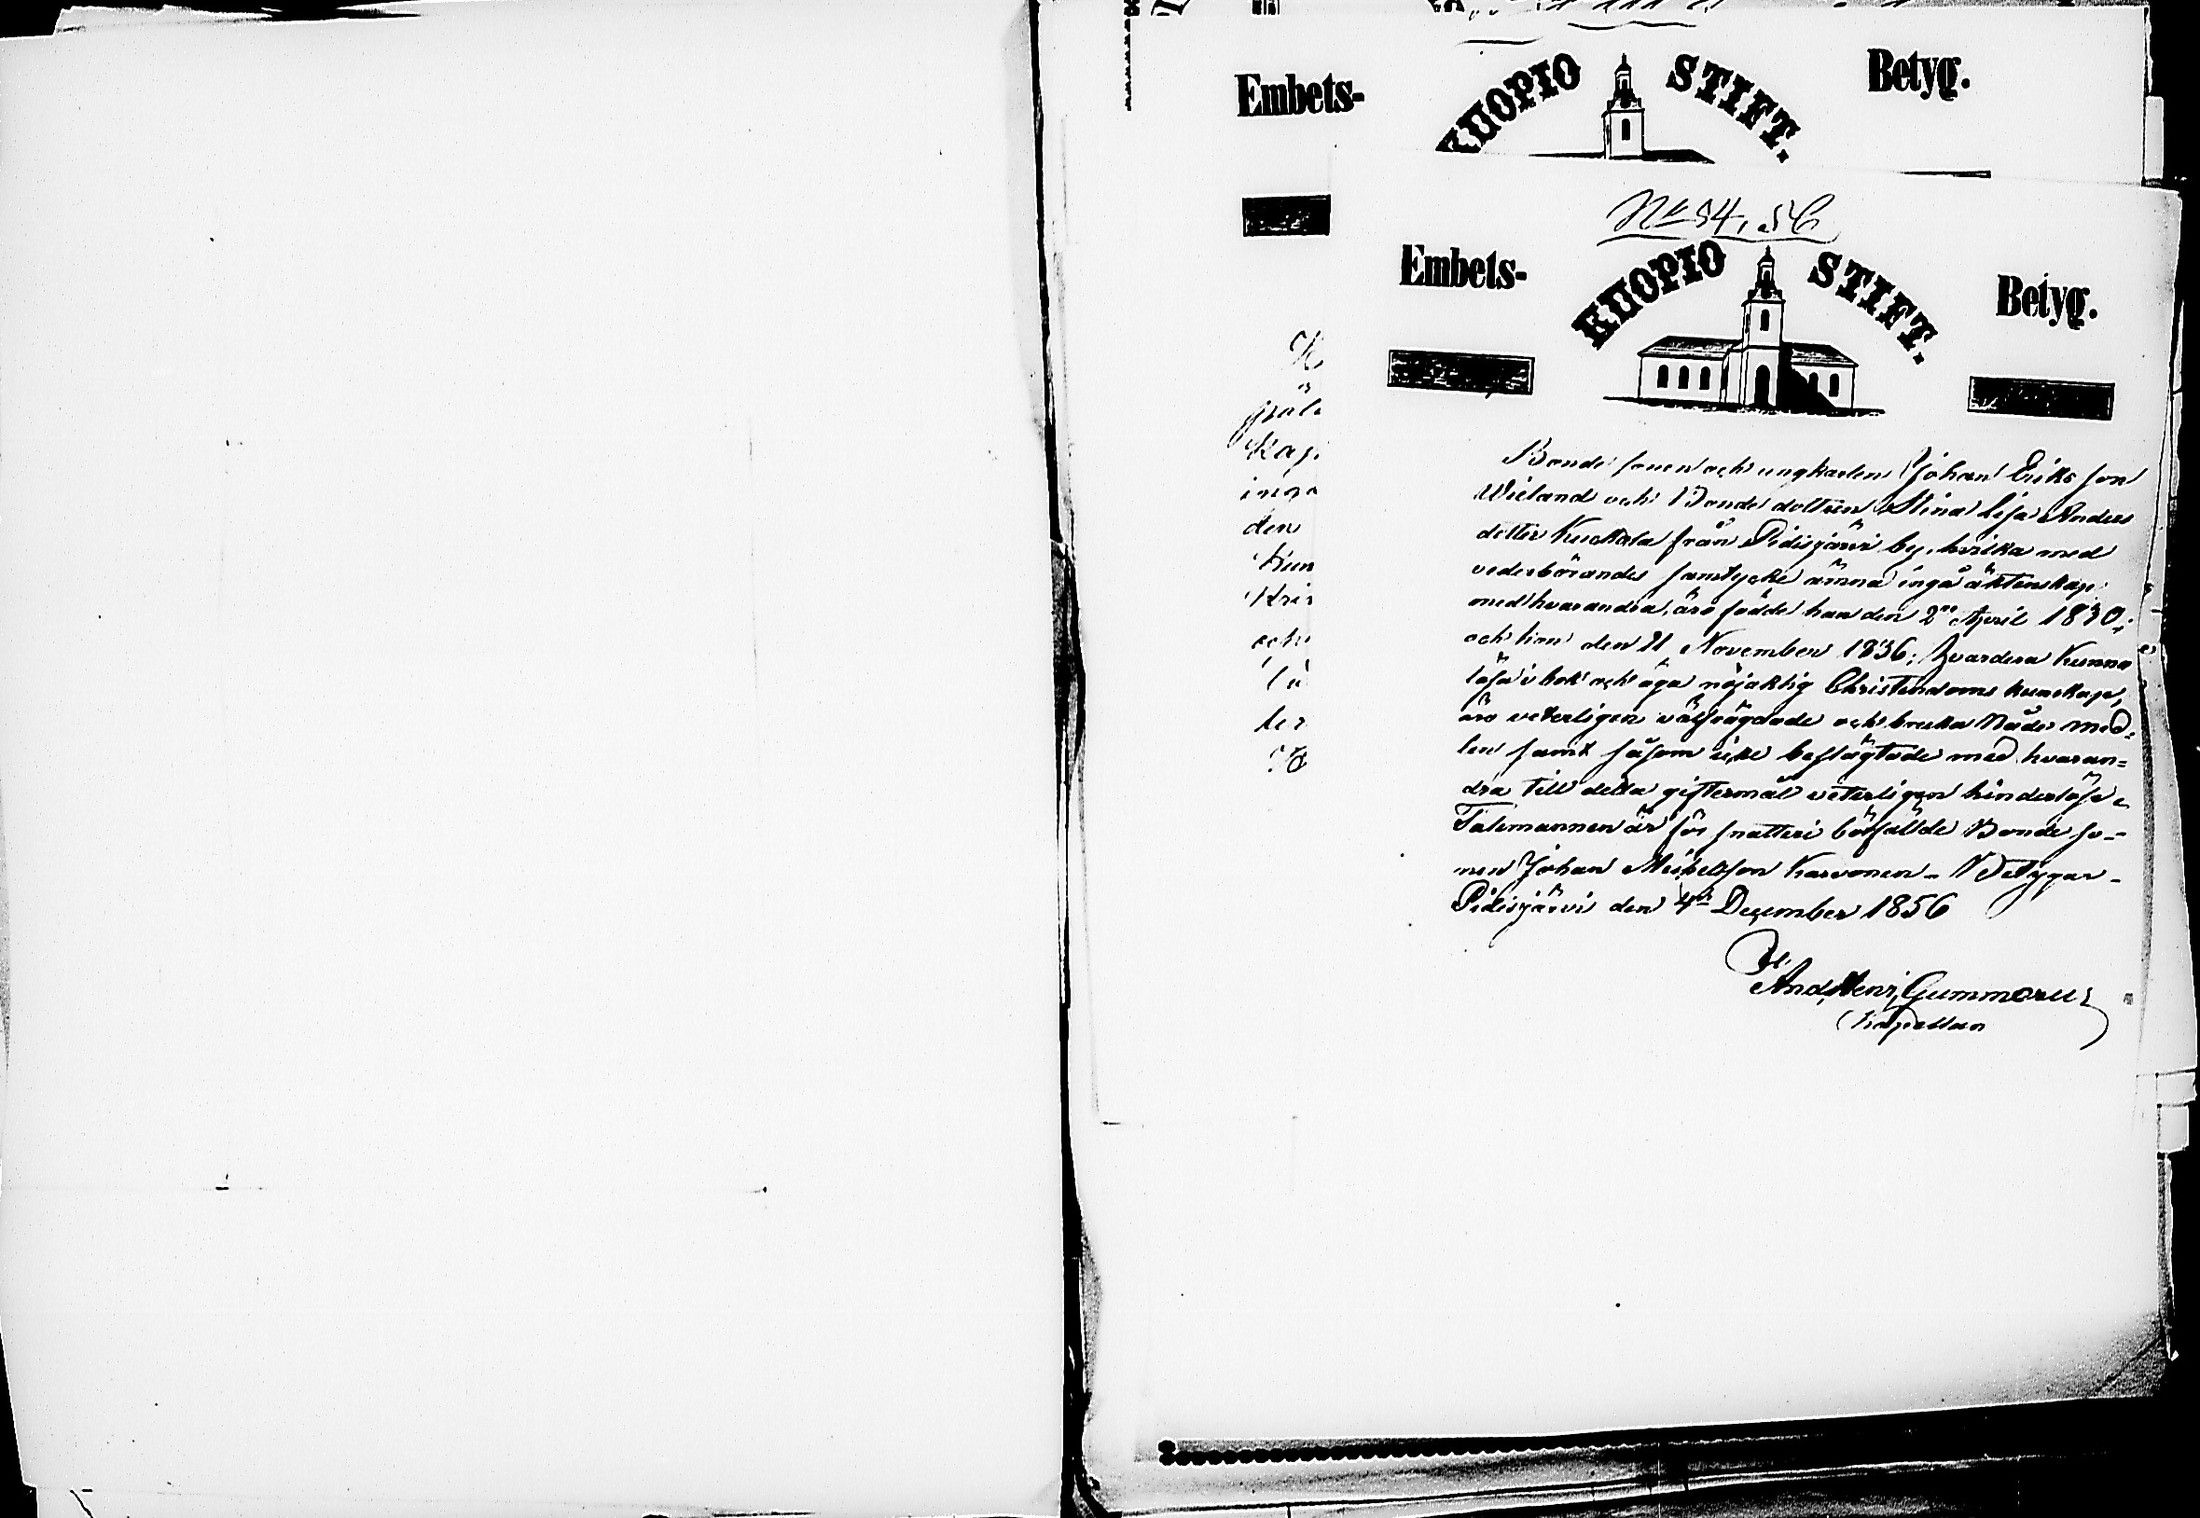 Embets-
KUOPIO STIFT.
Betyg.
No 54, 56
Embets-
KUOPIO STIFT.
Betyg.
K
den
Kun
Kris
och
Bonde sonen och ungkarlen Johan Eriks son
Wieland och Bonde dottren Stina Lisa Anders
dotter Kuckala från Pidisjärvi by, hvilka med
vederbörandes samtycke ämna ingå äktenskap
med hvarandra, äro födde han den 2n April 1830,
och hon den 11 November 1836; hvardera kunna
läsa i bok och äga nöjaktig Christendoms kunskap,
äro veterligen välfrägdade och bruka Nåde med-
len samt såsom icke beslägtade med hvaran-
dra till detta giftermål veterligen hinderlöse.
Talemannen är för snatteri bötfällde Bonde so-
nen Johan Michelsson Karvonen. Betygar
Pidisjärvi den 4de December 1856
And. Henr. Gummerus
Kapellan